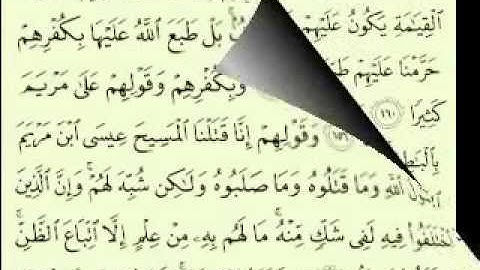 ٱلْقِيَٰمَةِ يَكُونُ عَلَيْهِمْ بَلْ طَبَعَ ٱللَّهُ عَلَيْهَا بِكُفْرِهِمْ
حَرَّمْنَا عَلَيْهِمْ وَبِكُفْرِهِمْ وَقَوْلِهِمْ عَلَىٰ مَرْيَمَ
كَثِيرًا ١٦٠ ١٥٦ وَقَوْلِهِمْ إِنَّا قَتَلْنَا ٱلْمَسِيحَ عِيسَى ٱبْنَ مَرْيَمَ
رَسُولَ ٱللَّهِ وَمَا قَتَلُوهُ وَمَا صَلَبُوهُ وَلَٰكِن شُبِّهَ لَهُمْ ۚ وَإِنَّ ٱلَّذِينَ
ٱخْتَلَفُوا۟ فِيهِ لَفِى شَكٍّ مِّنْهُ ۚ مَا لَهُم بِهِۦ مِنْ عِلْمٍ إِلَّا ٱتِّبَاعَ ٱلظَّنِّ ۚ